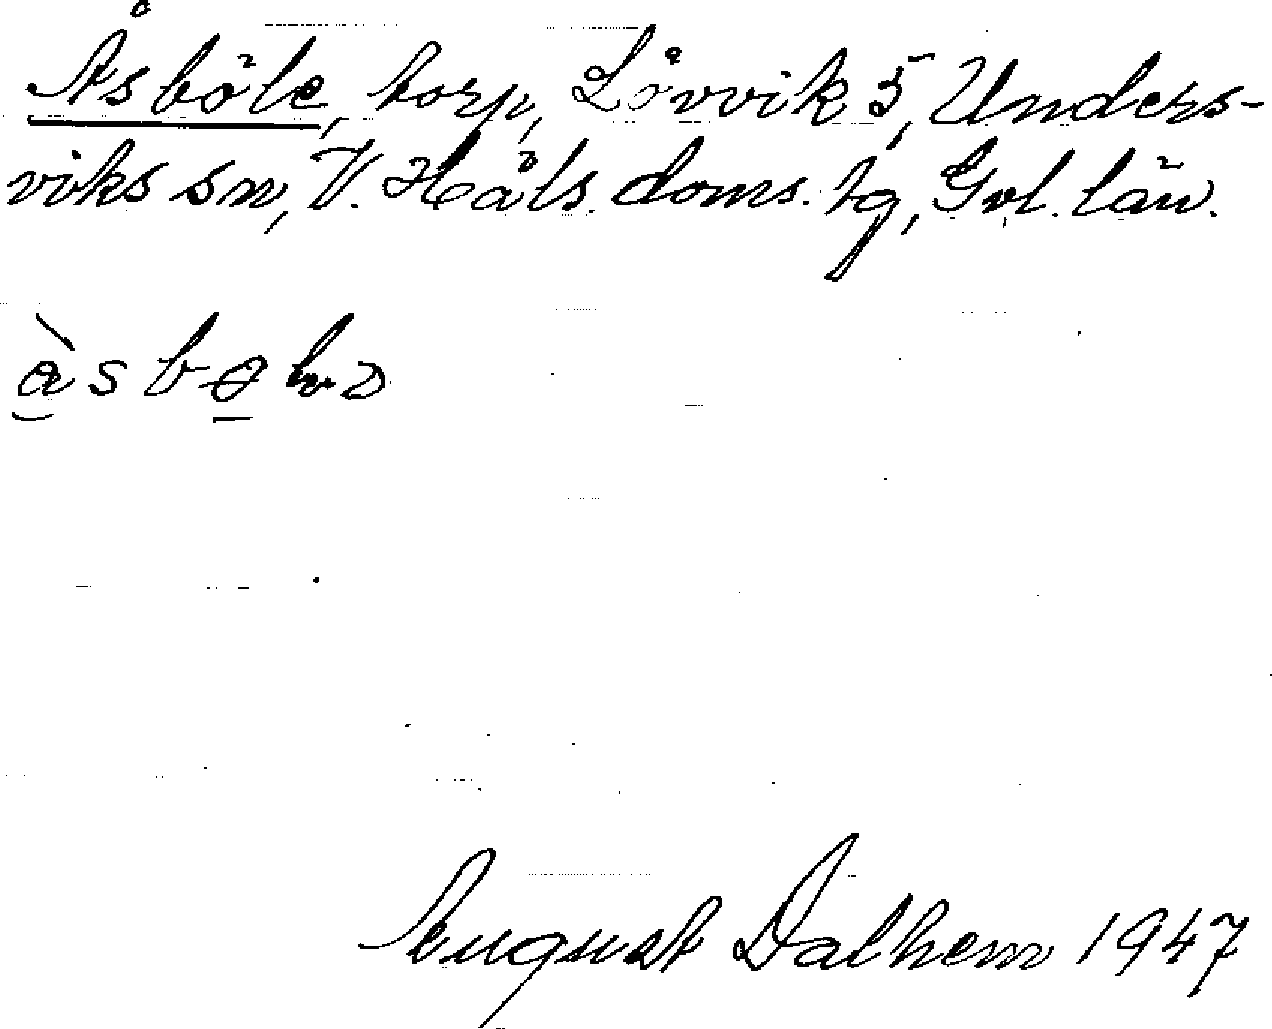 Åsböle, torp, Lövvik 5, Unders-
viks sn, V. Häls. doms. tg, Gvl. län.
August Dalhem 1947